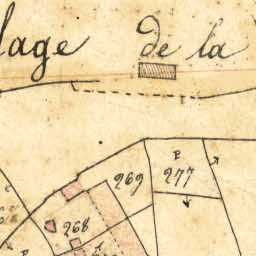 lage de la
P
269 277
268